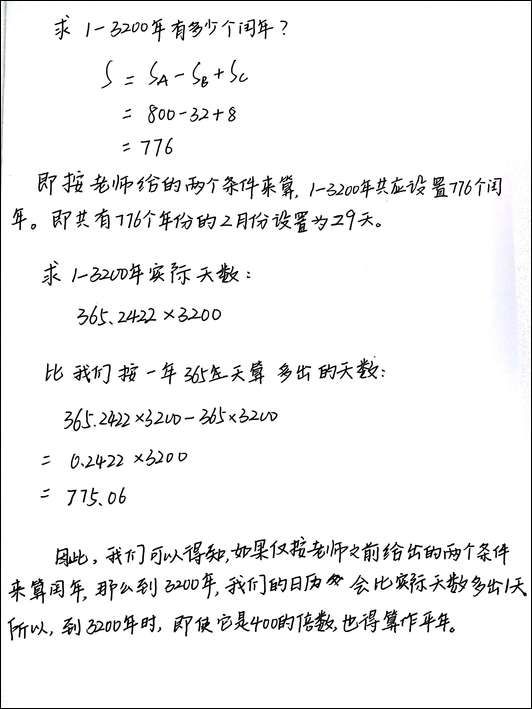 求 1-3200年有多少个闰年?
S = SA - SB + SC
= 800-32+8
= 776
即按老师给的两个条件来算, 1-3200年共应设置776个闰
年。即共有776个年份的2月份设置为29天。
求 1-3200年实际天数:
365.2422×3200
比我们按一年365天算多出的天数:
365.2422×3200-365×3200
= 0.2422×3200
= 775.06
因此, 我们可以得知, 如果仅按老师之前给出的两个条件
来算闰年, 那么到3200年, 我们的日历会比实际天数多出1天
所以, 到3200年时, 即使它是400的倍数, 也得算作平年。